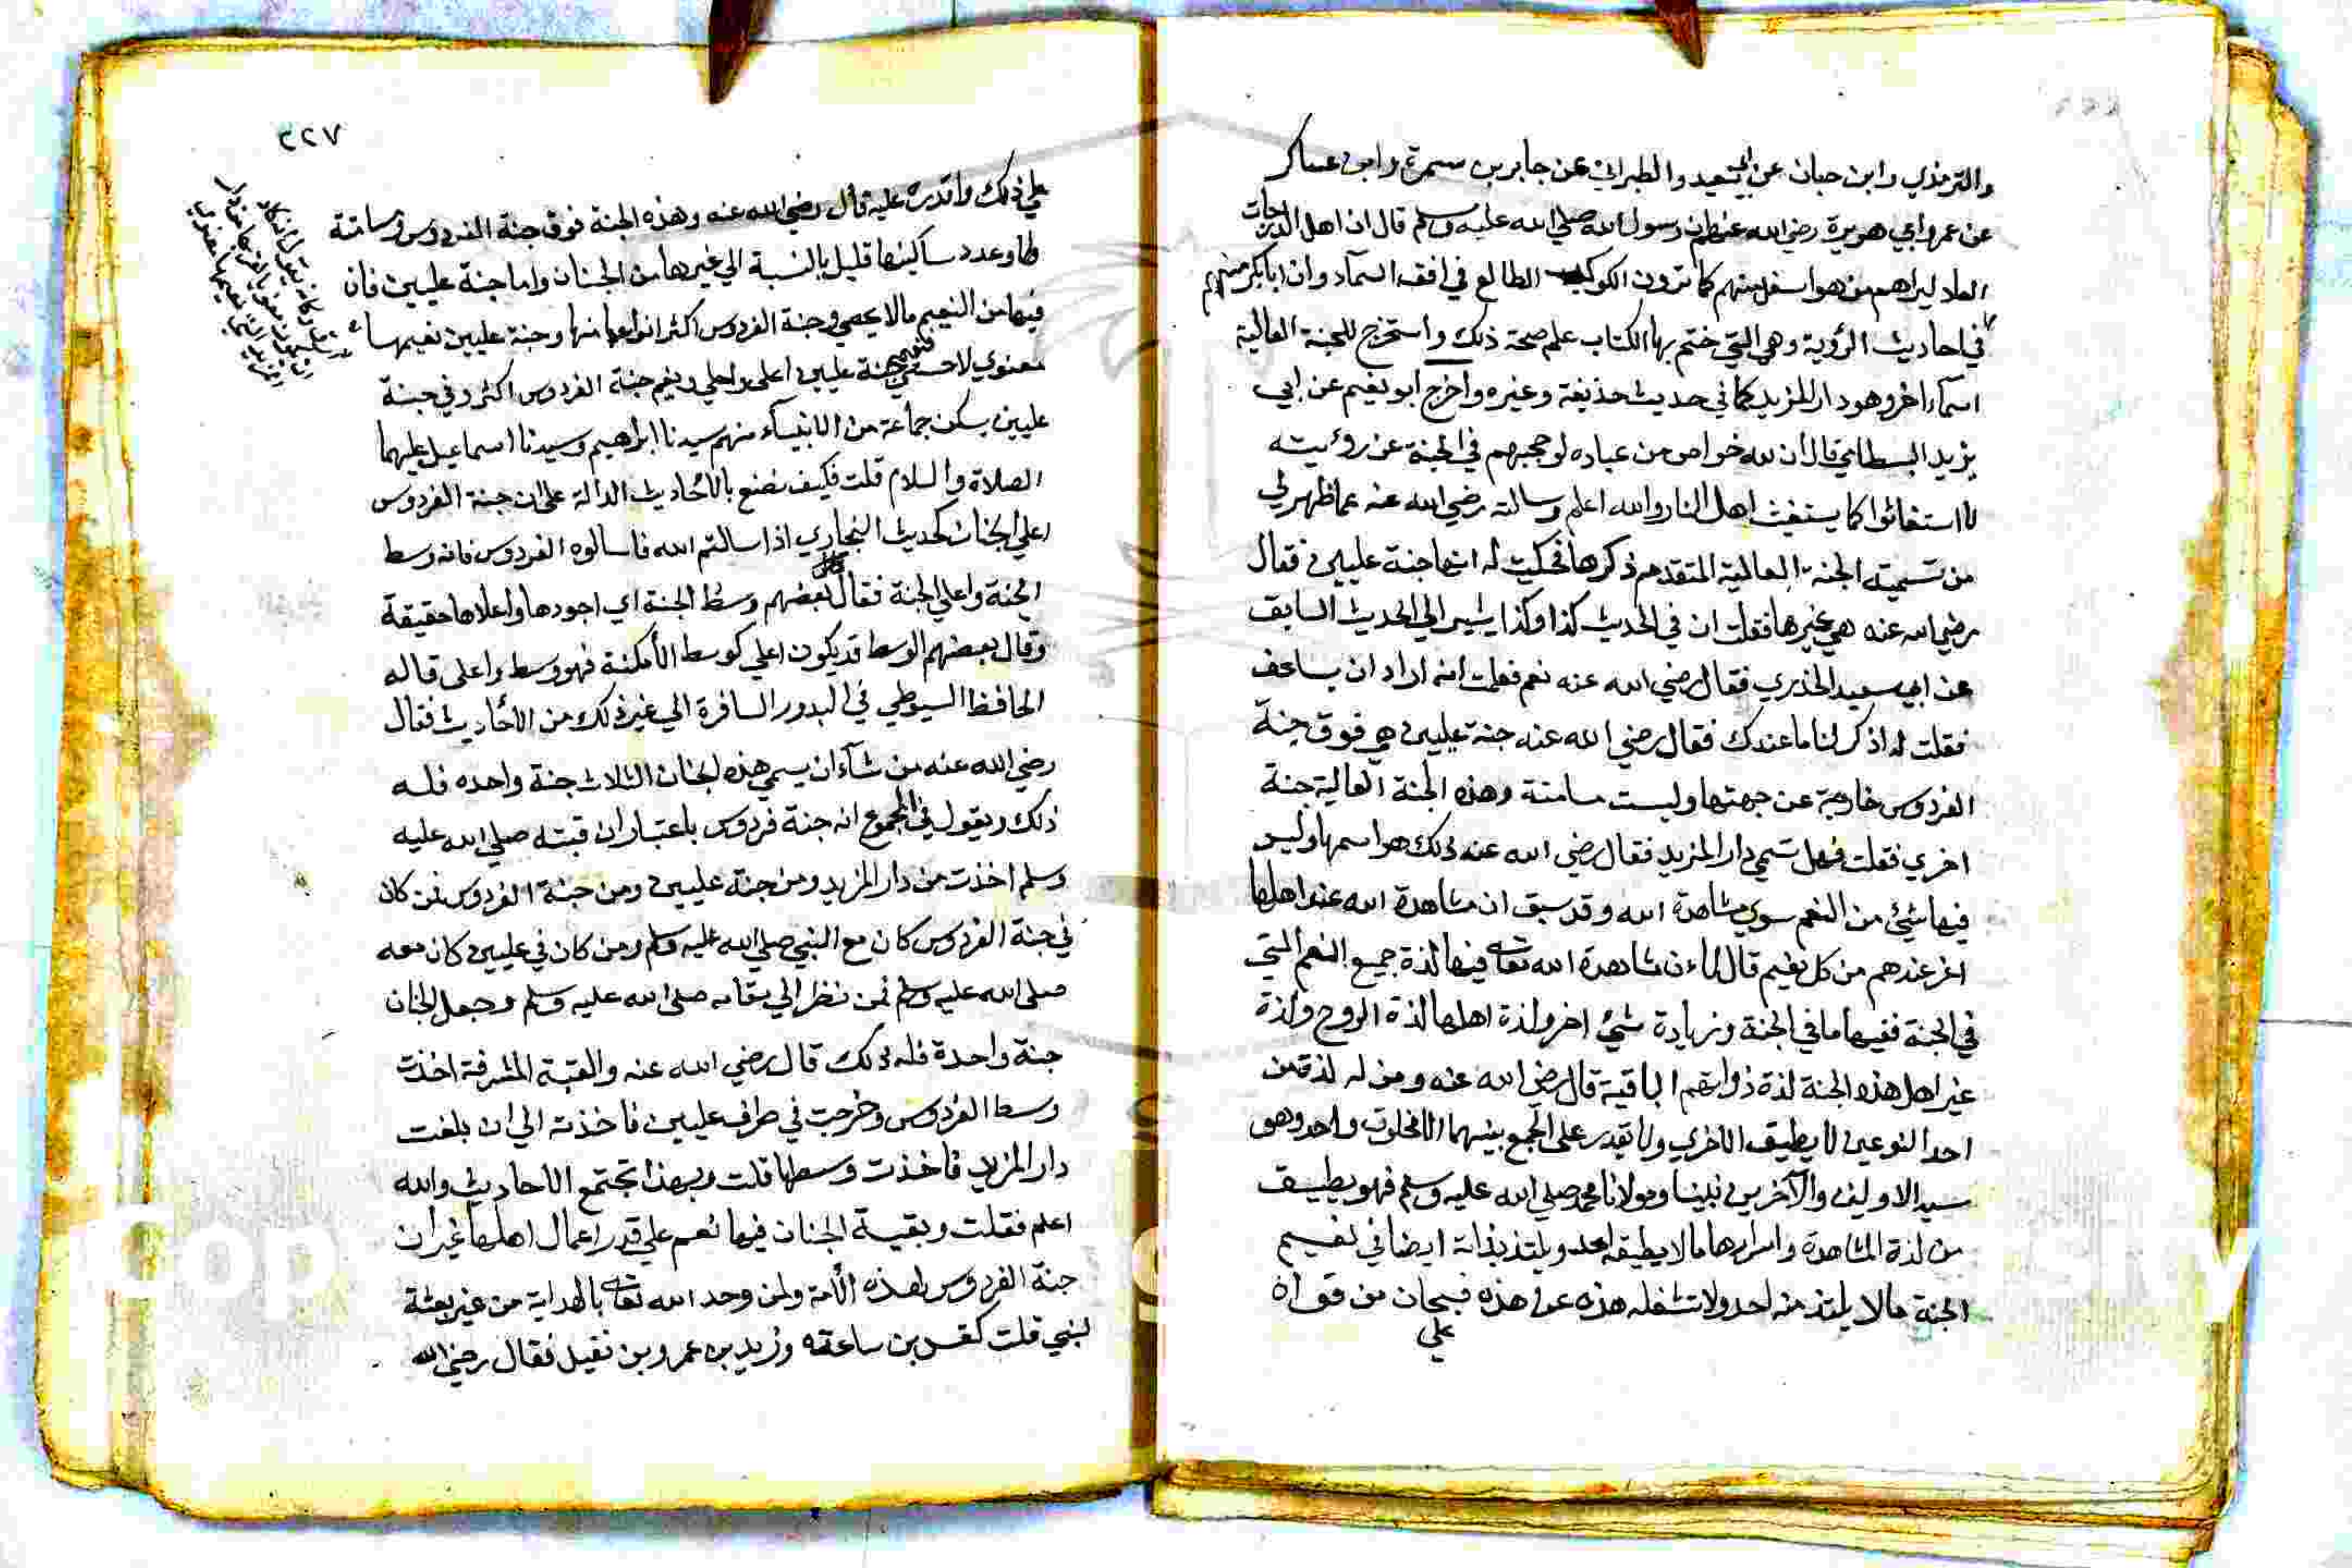 والترمذي وابن حبان عن ابي سعيد والطبراني عن جابر بن سمرة وابن عساكر
عن عمر وابي هريرة رضي الله عنهم ان رسول الله صلي الله عليه وسلم قال ان اهل الدرجات
العلا ليراهم من هو اسفل منهم كما ترون الكوكب الطالع في افق السمآء وان ابا بكر منهم
في احاديث الرؤية وهي التي ختم بها الكتاب علم صحة ذلك واستخرج للجنة العالية
اسمآء اخر وهو دار المزيد كما في حديث حذيفة وغيره واخرج ابو نعيم عن ابي
يزيد البسطامي قال ان لله خواص من عباده لو حجبهم في الجنة عن رؤيته
لاستغاثوا كما يستغيث اهل النار والله اعلم وسالته رضي الله عنه عما ظهر لي
من تسمية الجنة العالية المتقدم ذكرها فحكيت له انها جنة عليين فقال
رضي الله عنه هي غيرها فقلت ان في الحديث كذا وكذا يشير الي الحديث السابق
عن ابي سعيد الخدري فقال رضي الله عنه نعم فعلمت انه اراد ان يساعف
فقلت له اذكر لنا ما عندك فقال رضي الله عنه جنة عليين هي فوق جنة
الفردوس خارجة عن جهتها وليست مسامتة وهذه الجنة العالية جنة
اخري فقلت فهل تسمي دار المزيد فقال رضي الله عنه ذلك هو اسمها وليس
فيها شيئ من النعم سوي مشاهدة الله وقد سبق ان مشاهدة الله عند اهلها
اعز عندهم من كل نعيم قال لان مشاهدة الله تعالي فيها لذة جميع النعم التي
في الجنة ففيها ما في الجنة وزيادة شيئ اخر ولذة اهلها لذة الروح ولذة
غير اهل هذه الجنة لذة ذواتهم الباقية قال رضي الله عنه ومن له لذة من
احد النوعين لا يطيق الاخري ولا يقدر على الجمع بينهما الا مخلوق واحد وهو
سيد الاولين والآخرين نبينا ومولانا محمد صلي الله عليه وسلم فهو يطيق
من لذة المشاهدة واسرارها ما لا يطيقه احد ويلتذ بذاته ايضا في نعيم
الجنة ما لا يلتذ منه احد ولا تشغله هذه عن هذه فسبحان من قواه
علي
٣٢٧
علي ذلك واقدره عليه قال رضي الله عنه وهذه الجنة فوق جنة الفردوس ومسامتة
لها وعدد ساكنيها قليل بالنسبة الي غيرها من الجنان واما جنة عليين فان
فيها من النعيم مالا يحصي وجنة الفردوس اكثر انواعا منها وجنة عليين نعيمها
معنوي لا حسي فنعيم جنة عليين اعلي واحلي ونعيم جنة الفردوس اكثر وفي جنة
عليين يسكن جماعة من الانبيآء منهم سيدنا ابراهيم وسيدنا اسماعيل عليهما
الصلاة والسلام قلت فكيف نصنع بالاحاديث الدالة على ان جنة الفردوس
اعلي الجنان كحديث البخاري اذا سالتم الله فاسالوه الفردوس فانه وسط
الجنة واعلي الجنة فقال بعضهم وسط الجنة اي اجودها واعلاها حقيقة
وقال بعضهم الوسط قد يكون اعلي كوسط الأمكنة فهو وسط واعلى قاله
الحافظ السيوطي في البدور السافرة الي غير ذلك من الأحاديث فقال
رضي الله عنه من شآء ان يسمي هذه الجنان الثلاث جنة واحده فله
ذلك ويقول في المجموع انه جنة فردوس باعتبار ان قبته صلي الله عليه
وسلم اخذت من دار المزيد ومن جنة عليين ومن جنة الفردوس فمن كان
في جنة الفردوس كان مع النبي صلي الله عليه وسلم ومن كان في عليين كان معه
صلى الله عليه وسلم فمن نظر الي مقامه صلى الله عليه وسلم وجعل الجنان
جنة واحدة فله ذلك قال رضي الله عنه والقبة المشرفة اخذت
وسط الفردوس وخرجت في طرف عليين فاخذته الي ان بلغت
دار المزيد فاخذت وسطها قلت وبهذا تجتمع الاحاديث والله
اعلم فقلت وبقية الجنان فيها نعم علي قدر اعمال اهلها غير ان
جنة الفردوس لهذه الأمة ولمن وحد الله تعالي بالهداية من غير بعثة
لنبي قلت كقس بن ساعده وزيد بن عمرو بن نفيل فقال رضي الله